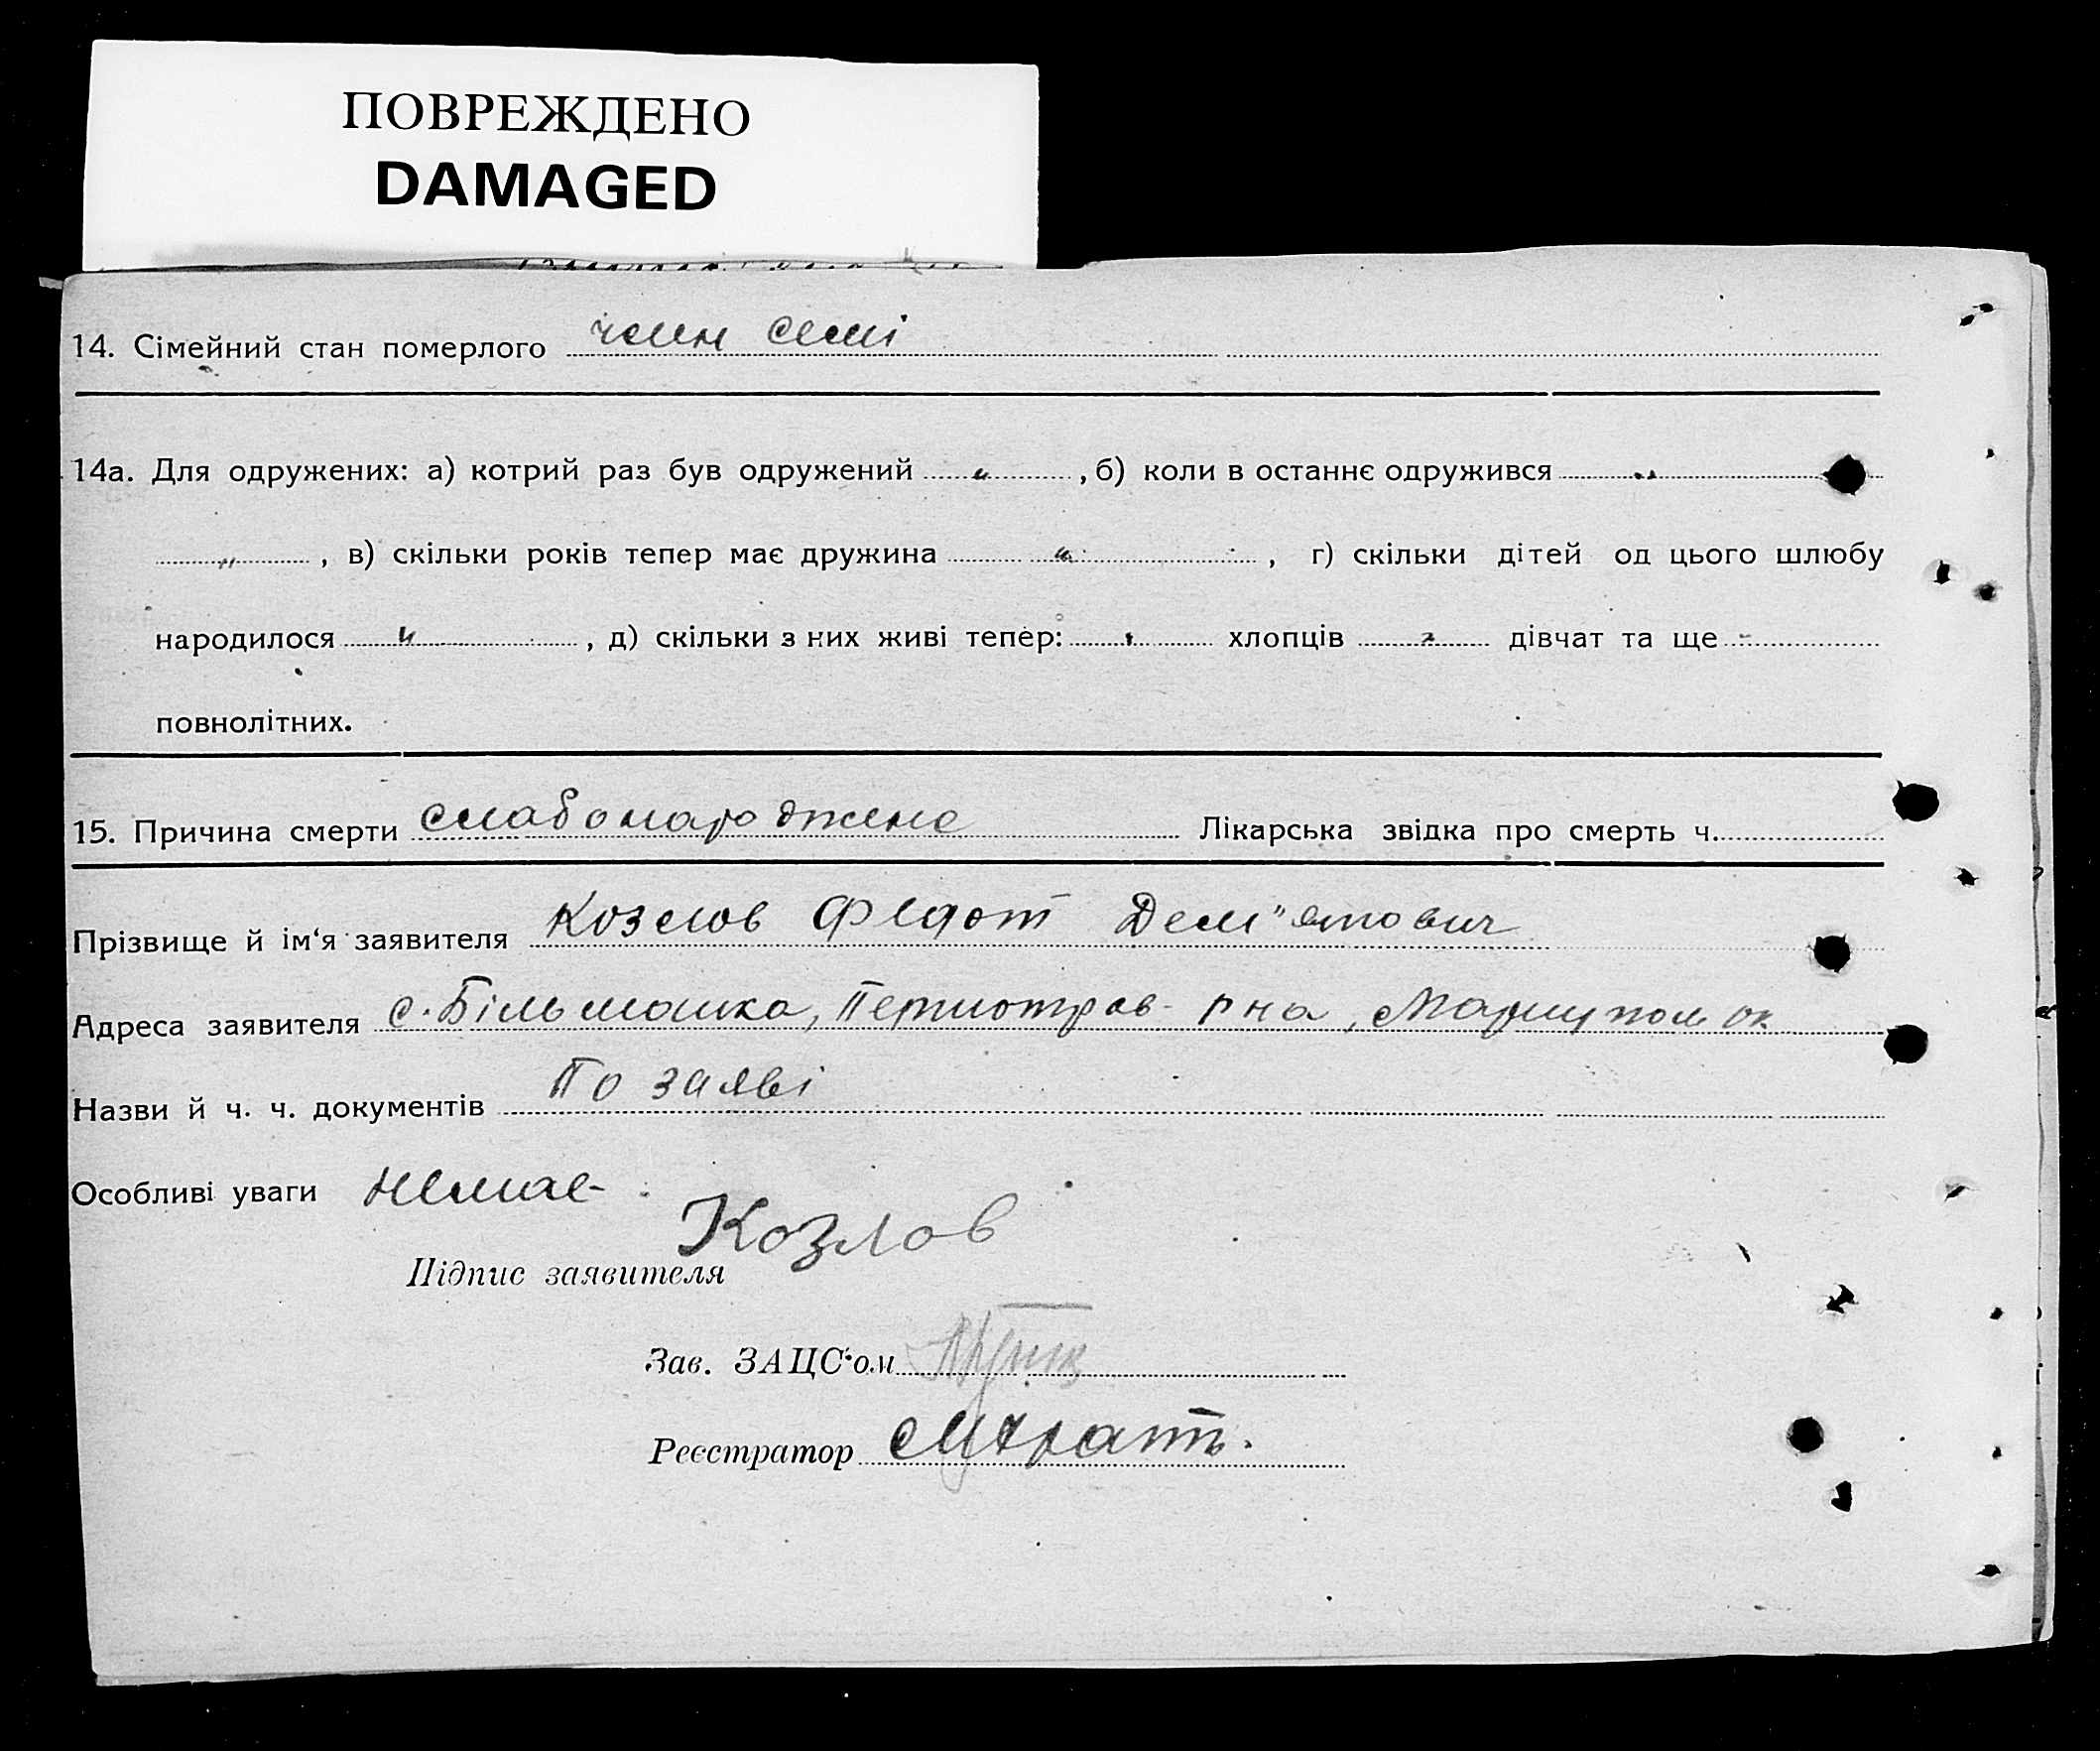 ПОВРЕЖДЕНО
DAMAGED
14. Сімейний стан померлого член семі
14а. Для одружених: а) котрий раз був одружений „ , б) коли в останнє одружився „
„ , в) скільки років тепер має дружина „ , г) скільки дітей од цього шлюбу
народилося „ , д) скільки з них живі тепер: хлопців „ дівчат та ще -
повнолітних.
15. Причина смерти слабонароджене Лікарська звідка про смерть ч.
Прізвище й ім‘я заявителя Козлов Федот Дем"янович
Адреса заявителя с. Більманка, Першотрав- р на, Маріупол ок
Назви й ч. ч. документів По заяві
Особливі уваги немає
Підпис заявителя Козлов
Зав. ЗАЦС‘ом
Реєстратор